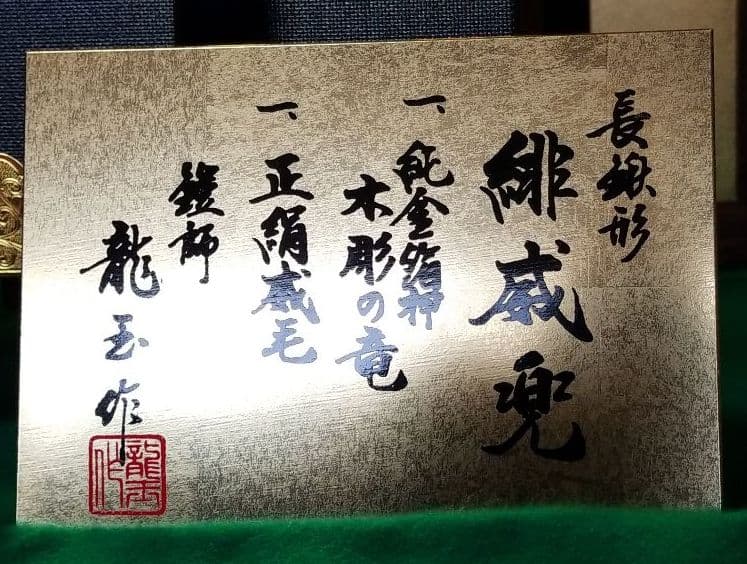 長鍬形
緋威兜
一、純金箔押
木彫の竜
一、正絹威毛
鎧師
龍玉作
龍玉作